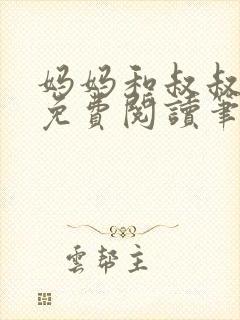 妈妈和叔叔
免費閱讀筆
雲幫主